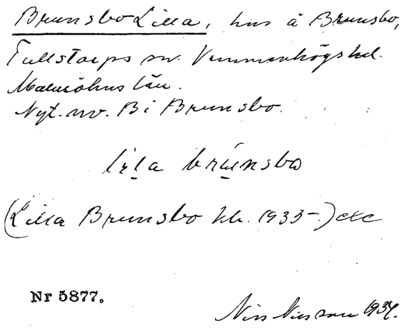 Brunsbo Lilla, hus å Brunsbo,
Tullstorps sn. Vemmenhögs hd.
Malmöhus län.
Nyt. nv. Bi Brunsbo.
lila brunsbo
(Lilla Brunsbo kb. 1933-) etc
Nr 5877.
Nils Nilsson 1934.